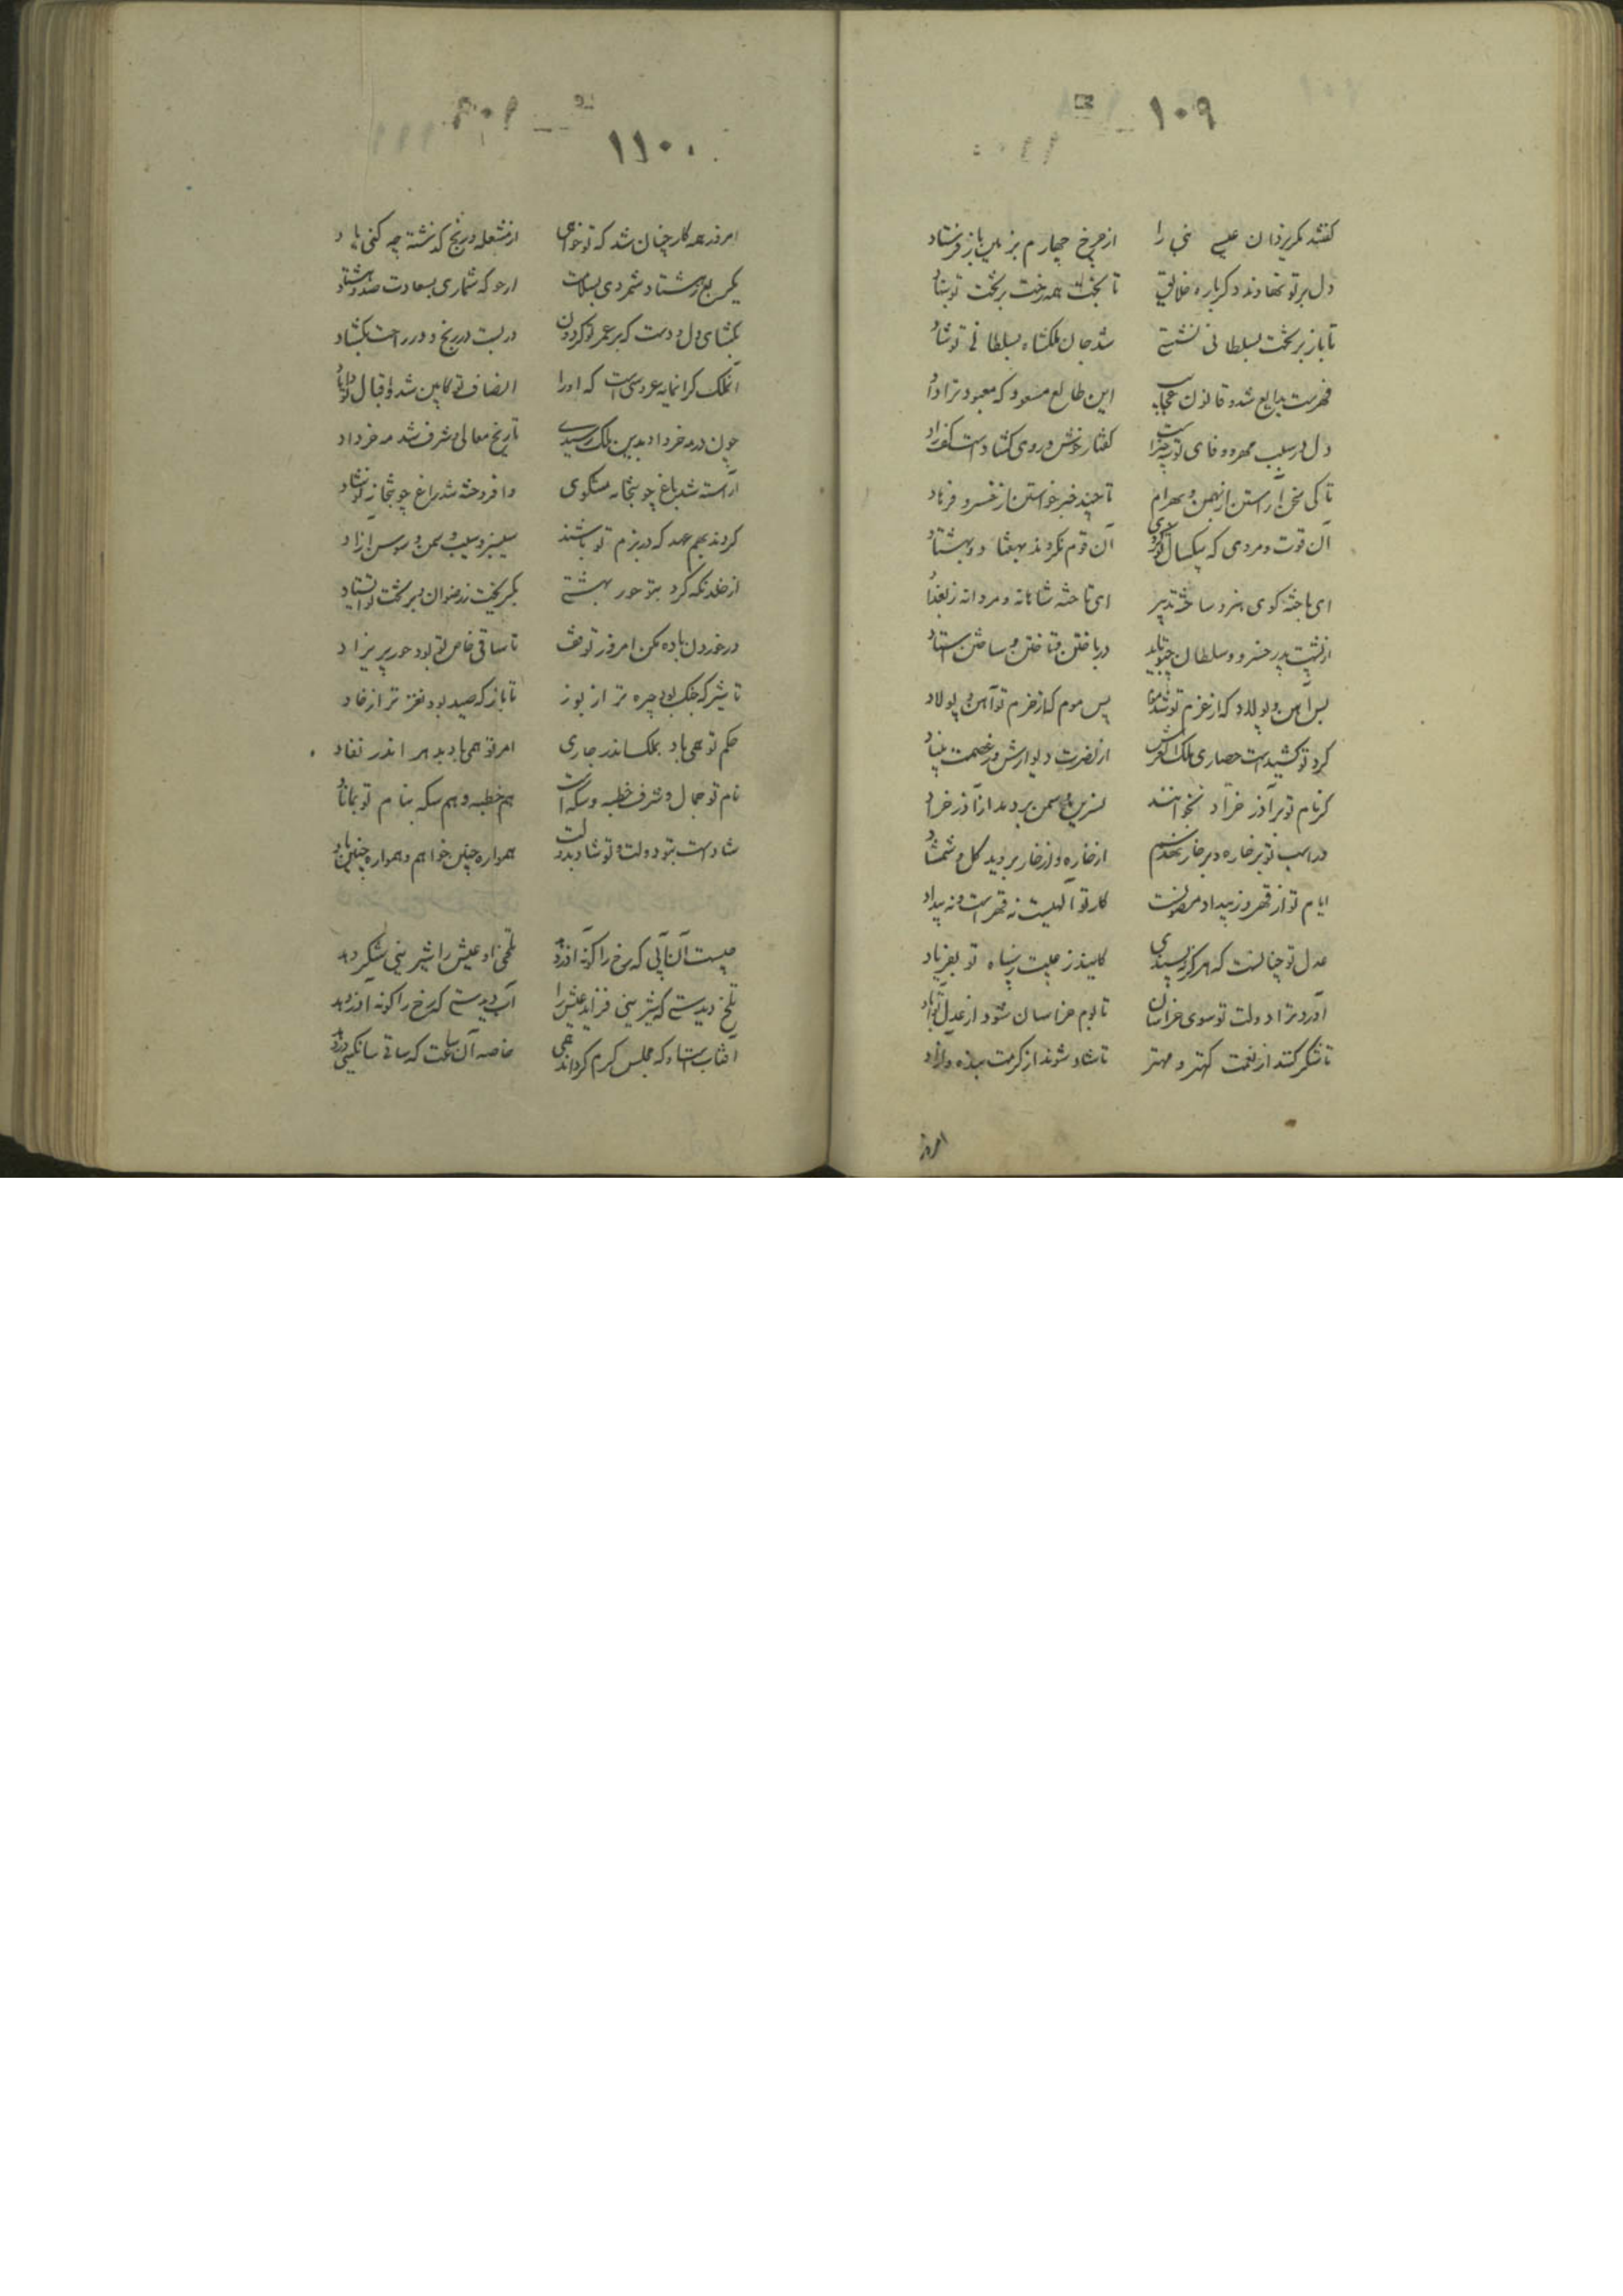 ۱۰۹
گفتند مگر یزدان عیسی نبی را از چرخ چهارم بزمین باز فرستاد
دل بر تو نهادند دگرباره خلایق تا بخت همه رخت بر تخت تو بنهاد
تا باز بر تخت بسلطانی نشستی شد جان ملکشاه بسلطانی تو شاد
فهرست بدایع شد و قانون عجایب این طالع مسعود که معبود ترا داد
دل در سلب مهر و وفای تو گفتار خوش و روی گشادست
تا کی سخن آراستن از بهمن و بهرام تا چند خبر خواستن از خسرو و فرهاد
آن قوت و مردی که بیکسال آن قوم نکردند بهفتاد و بهشتاد
ای باخته گوی هنر و ساخته تدبیر ای تاخته شاهانه و مردانه ز بغداد
از پشت پدر خسرو و سلطان چو تو باید در باختن و تاختن و ساختن استاد
بس آهن و پولاد که از عزم تو شد موم بس موم که از حزم تو آهن و پولاد
گرد تو کشیدست حصاری ملک العرش از نصرت دیوارش و ز عصمت بنیاد
گر نام تو بر آذر خرّاد بخوانند نسرین و سمن بردمد از آذر خراد
ور اسب تو بر خاره و بر خار از خاره و از خار بروید گل و شمشاد
ایام تو از قهر و ز بیداد مصونست کار تو الهیست نه قهرست و نه بیداد
عدل تو چنانست که هرگز نپسندی کاید ز پناه تو بفریاد
آورد ترا دولت تو سوی خراسان تا بوم خراسان شود از عدل تو آباد
تا شکر کنند از نعمت کهتر و مهتر تا شاد شوند از کرمت بنده و آزاد
امروز
۱۱۰
امروز همه کار چنان شد که تو خواهی از مشغله و رنج گذشته چه کنی یاد
یکربع ز هشتاد شمردی بسلامت ارجو که شماری بسعادت صد و هشتاد
بگشای دل و دست که بر عمر تو گردون دربست در رنج و در راحت بگشاد
آن ملک گرانمایه عروسی است که او را انصاف تو کابین شد و اقبال تو داماد
چون در مه خرداد بدین ملک رسیدی تاریخ معالی و شرف شد مه خرداد
آراسته شد باغ چو بتخانه مشکوی وافروخته شد راغ چو بتخانه نوشاد
کردند بهم عهد که در بزم تو باشند سیسنبر و سیب و سمن و سوسن آزاد
از خلد نگه کرد بتو حور بهشتی بگریخت ز رضوان و بر تخت تو استاد
در خوردن باده مکن امروز توقف تا ساقی خاص تو بود حور پریزاد
تا شیر که جنگ بود چیره تر از یوز تا باز که صید بود نغز تر از خاد
حکم تو همی باد بملک اندر جاری امر تو همی باد بدهر اندر نفاد
نام تو جمال و شرف خطبه و سکه است هم خطبه و هم سکه بنام تو بماناد
شادست بتو دولت و تو شاد بدولت همواره چنین خواهم و همواره چنین باد
چیست آن آبی که رخ را گونه آذر دهد تلخی او عیش را شیرینی شکر دهد
تلخ دیدستی که شیرینی فزاید عیش را آب دیدستی که رخ را گونه آذر دهد
آفتابست او که مجلس گرم گرداند همی خاصه آن ساعت که ساقی ساتگینی دردهد